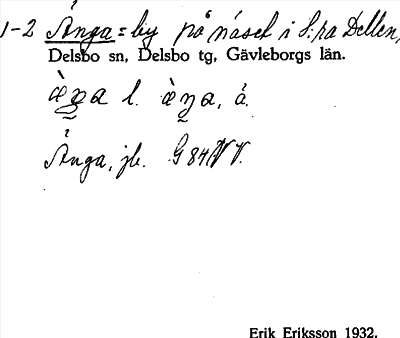 1-2 Ånga = by på näset i S:ra Dellen,
Delsbo sn, Delsbo tg, Gävleborgs län.
æ̀ŋa l. æ̀ŋa, å.
Ånga, jb. G 84 NV.
Erik Eriksson 1932.